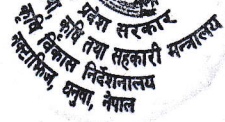 प्रदेश सरकार
कृषि तथा सहकारी मन्त्रालय
कृषि विकास निर्देशनालय
नक्टाझिज, धनुषा, नेपाल